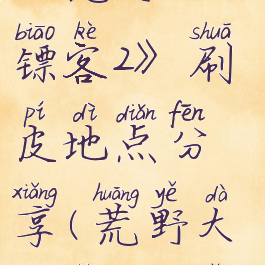 biāo kè shuā
镖客2》 刷
pí dì diǎn fēn
皮地点分
xiǎng huāng yě dà
享(荒野大